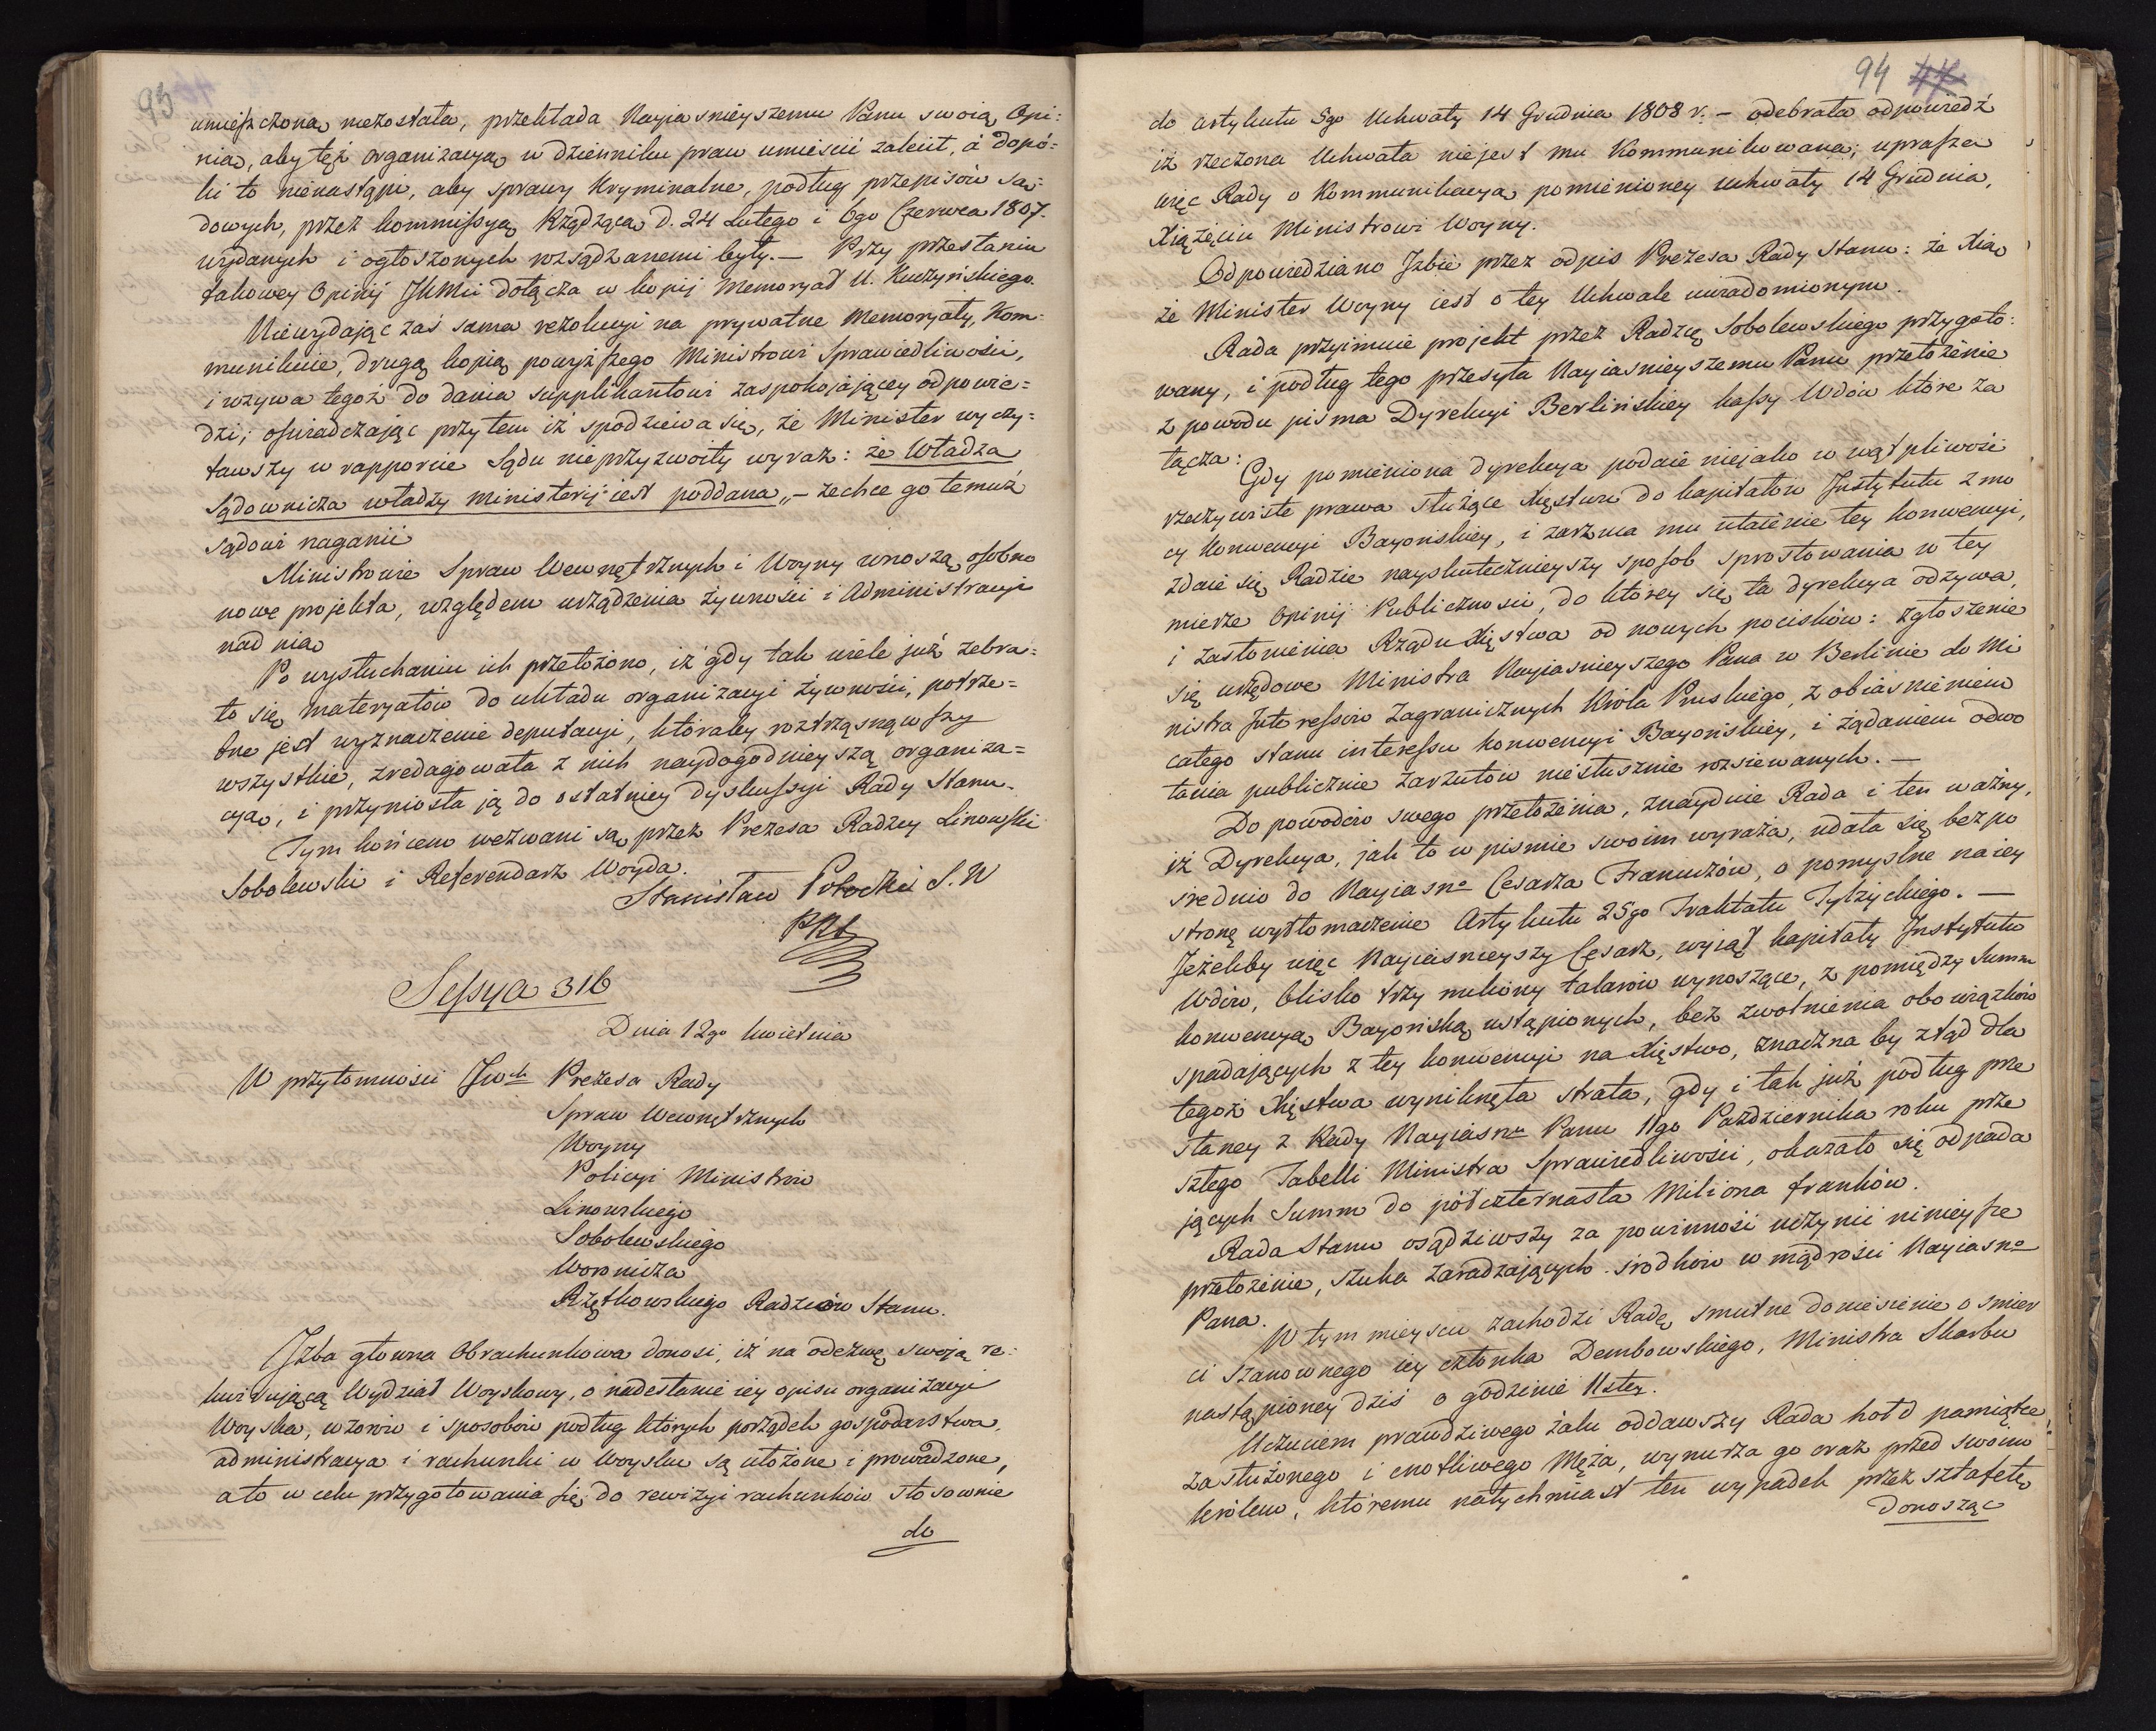 93
umieszczoną niezostała, przekłada Nayjaśnieyszemu Panu swoią Opi:
nią, aby tęż organizacyą w dzienniku praw umieścić zalecił, a dopó=
ki to nienastąpi, aby sprawy kryminalne, podług przepisów są=
dowych, przez kommissyą Rządzącą d. 24 Lutego i 6go Czerwca 1807.
wydanych i ogłoszonych rozsądzanemi były. — Przy przesłaniu
takowey Opinij JKMci dołącza w kopij Memoryał U. Kuczyńskiego.
Niewydając zaś sama rezolucyi na prywatne Memoryały, Kom=
munikuie, drugą kopią powyższego Ministrowi Sprawiedliwości,
i wzywa tegoż do dania supplikantowi zaspokojającey odpowie=
dzi; oświadczając przytem iż spodziewa się, że Minister wyczy=
tawszy w rapporcie Sądu nieprzyzwoity wyraz: że Władza
Sądownicza władzy ministerij jest poddana „— zechce go temuż
sądowi naganić
Ministrowie Spraw Wewnętrznych i Woyny wnoszą, osobno
nowe projekta, względem urządzenia żywności i Administracyi
nad nią
Po wysłuchaniu ich przełożono, iż gdy tak wiele już zebra=
ło się materyałów do układu organizacyi żywności, potrze=
bne jest wyznaczenie deputacyi, któraby roztrząsnąwszy
wszystkie, zredagowała z nich naydogodnieyszą organiza=
cyą, i przyniosła ją do ostatniey dyskussyi Rady Stanu.
Tym końcem wezwani są przez Prezesa Radzcy Linowski
Sobolewski i Referendarz Woyda.
Stanisław Potocki S. W
PRS
Sessya 316
Dnia 12go kwietnia
W przytomności JWch Prezesa Rady
Spraw Wewnętrznych
Woyny
Policyi Ministrów
Linowskiego
Sobolewskiego
Woronicza
Rzętkowskiego Radzców Stanu.
Jzba główna Obrachunkowa donosi, iż na odezwę swoją re=
kwirującą Wydział Woyskowy, o nadesłanie iey opisu organizacyi
Woyska, wzorów i sposobów podług których porządek gospodarstwa,
administracya i rachunki w Woysku są ułożone i prowadzone,
a to w celu przygotowania się do rewizyi rachunków stosownie
do
94 47
do artykułu 5go Uchwały 14 Grudnia 1808 r. — odebrała odpowiedź
iż rzeczona Uchwała niejest mu Kommunikowaną; uprasza
więc Rady o Kommunikacyą pomienioney uchwały 14 Grudnia,
Xiążęciu Ministrowi Woyny.
Odpowiedziano Jzbie przez odpis Prezesa Rady Stanu: że Xią
że Minister Woyny iest o tey Uchwale uwiadomionym.
Rada przyimuie projekt przez Radzcę Sobolewskiego przygoto:
wany, i podług tego przesyła Nayiaśnieyszemu Panu przełożenie
z powodu pisma Dyrekcyi Berlińskiey kassy Wdów które za
łącza:
Gdy pomieniona dyrekcya podaie niejako w wątpliwość
rzeczywiste prawa służące Xięstwu do kapitałów Jnstytutu z mo
cy konwencyi Bayońskiey, i zarzuca mu utaienie tey konwencyi,
zdaie się Radzie nayskutecznieyszy sposob sprostowania w tey
mierze Opinij Publiczności, do którey się ta dyrekcya odzywa,
i zasłonienia Rządu Xięstwa od nowych pocisków: zgłoszenie
się urzędowe Ministra Nayiaśnieyszego Pana w Berlinie do Mi
nistra Jnteressów Zagranicznych Króla Pruskiego, z obiaśnieniem
całego stanu interessu konwencyi Bayońskiey, i żądaniem odwo
łania publicznie zarzutów niesłusznie rozsiewanych. —
Do powodów swego przełożenia, znayduie Rada i ten ważny,
iż Dyrekcya, jak to w piśmie swoim wyraża, udała się bezpo
średnio do Nayiaśno Cesarza Francuzów, o pomyślne na iey
stronę wytłomaczenie Artykułu 25go Traktatu Tylżyckiego. —
Jeżeliby więc Nayiaśnieyszy Cesarz, wyiął kapitały Jnstytutu
Wdów, blisko trzy miliony talarów wynoszące, z pomiędzy Summ
konwencyą Bayońską ustąpionych, bez zwolnienia obowiązków
spadających z tey konwencyi na Xięstwo, znaczna by ztąd dla
tegoż Xięstwa wyniknęła strata, gdy i tak już podług prze
słaney z Rady Nayiaśnu Panu 11go Października roku prze
szłego Tabelli Ministra Sprawiedliwości, okazało się odpada
jących Summ do półczternasta Miliona franków.
Rada Stanu osądziwszy za powinność uczynić ninieysze
przełożenie, szuka zaradzających środków w mądrości Nayiaśno
Pana.
W tym mieyscu zachodzi Radę smutne doniesienie o śmier
ci Szanownego iey członka Dembowskiego, Ministra Skarbu
nastąpioney dziś o godzinie 11stey.
Uczuciem prawdziwego żalu oddawszy Rada hołd pamiątce
zasłużonego i cnotliwego Męża, wynurza go oraz przed swoim
królem, któremu natychmiast ten wypadek przez sztafetę
donosząc